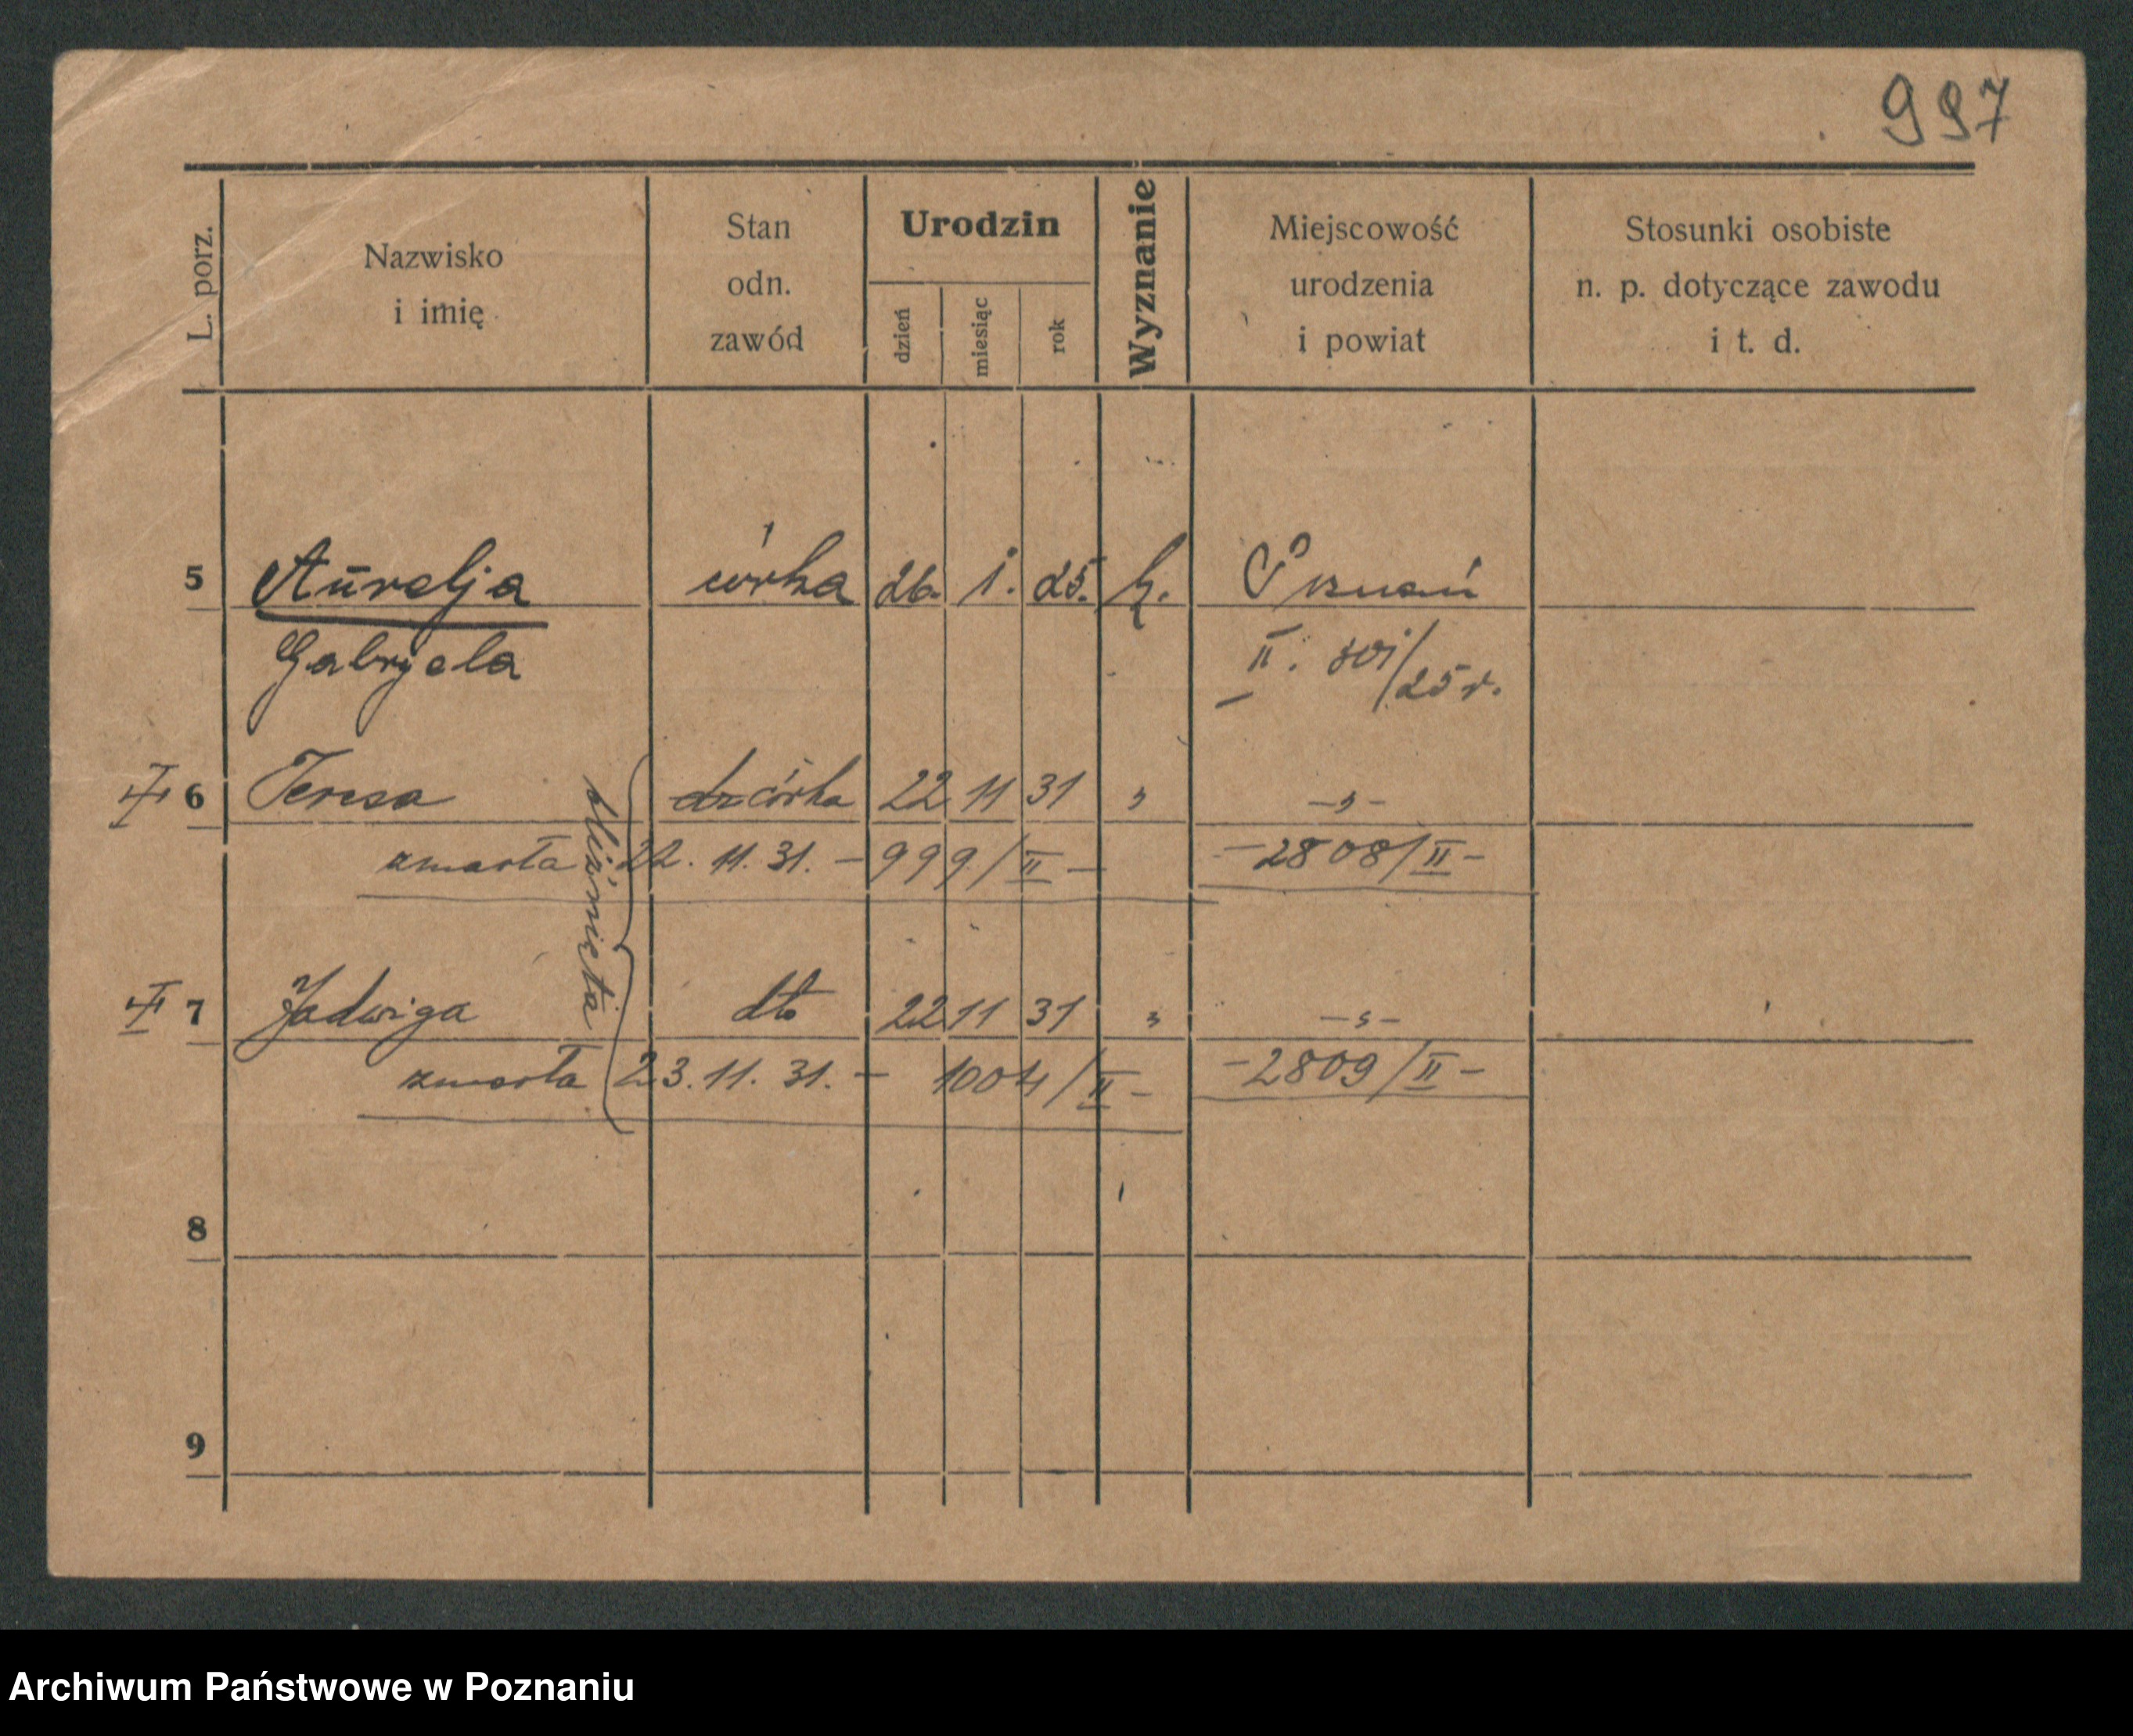 997
L. porz.
Nazwisko
i imię
Stan
odn.
zawód
Urodzin
dzień
miesiąc
rok
Wyznanie
Miejscowość
urodzenia
i powiat
Stosunki osobiste
n. p. dotyczące zawodu
i t. d.
5 Aurelja córka 26. 1. 25. k. Poznań
Gabryela II. 301/25 r.
6 Teresa dz córka 22 11 31 " —"—
zmarła 22. 11. 31. — 999/II — — 2808/II —
bliźnięta
7 Jadwiga dto 22 11 31 " —"—
zmarła 23. 11. 31. — 1004/II — — 2809/II —
8
9
Archiwum Państwowe w Poznaniu